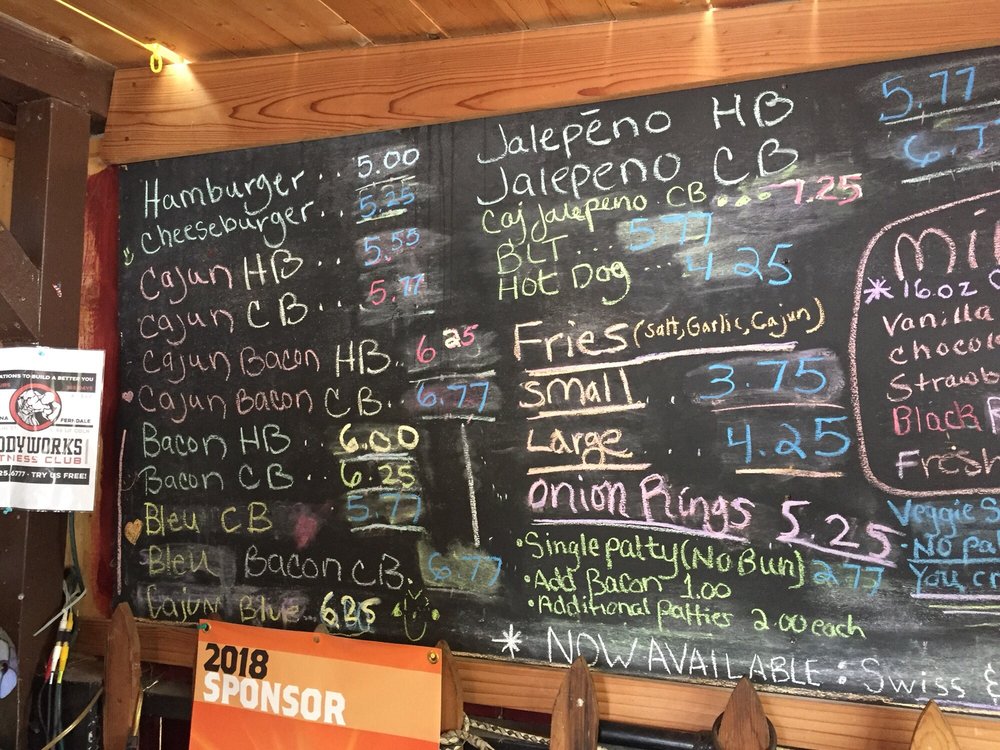 Hamburger .. 5.00
Cheeseburger .. 5.25
Cajun HB .. 5.55
Cajun CB .. 5.77
Cajun Bacon HB . 6.25
Cajun Bacon CB .. 6.77
Bacon HB . 6.00
Bacon CB . 6.25
Bleu CB 5.77
Bleu Bacon CB. 6.77
Cajun Blue
Jalepēno HB 5.77
Jalepeno CB
Caj Jalepeno CB ... 7.25
BLT ... 5.77
Hot Dog ... 4.25
Fries (Salt, Garlic, Cajun)
Small 3.75
Large . 4.25
Onion Rings 5.25
• Single patty (No Bun) 2.77
• Add Bacon 1.00
• Additional Patties 2.00 each
* NOW AVAILABLE : Swiss &
* 16.oz
Vanilla
Chocol
Strawb
Black
Fresh
Veggie S
- No pa
You c
A BETTER YOU
FERNDALE
DYWORKS
TNESS CLUB
25.6777 · TRY US FREE!
2018
SPONSOR